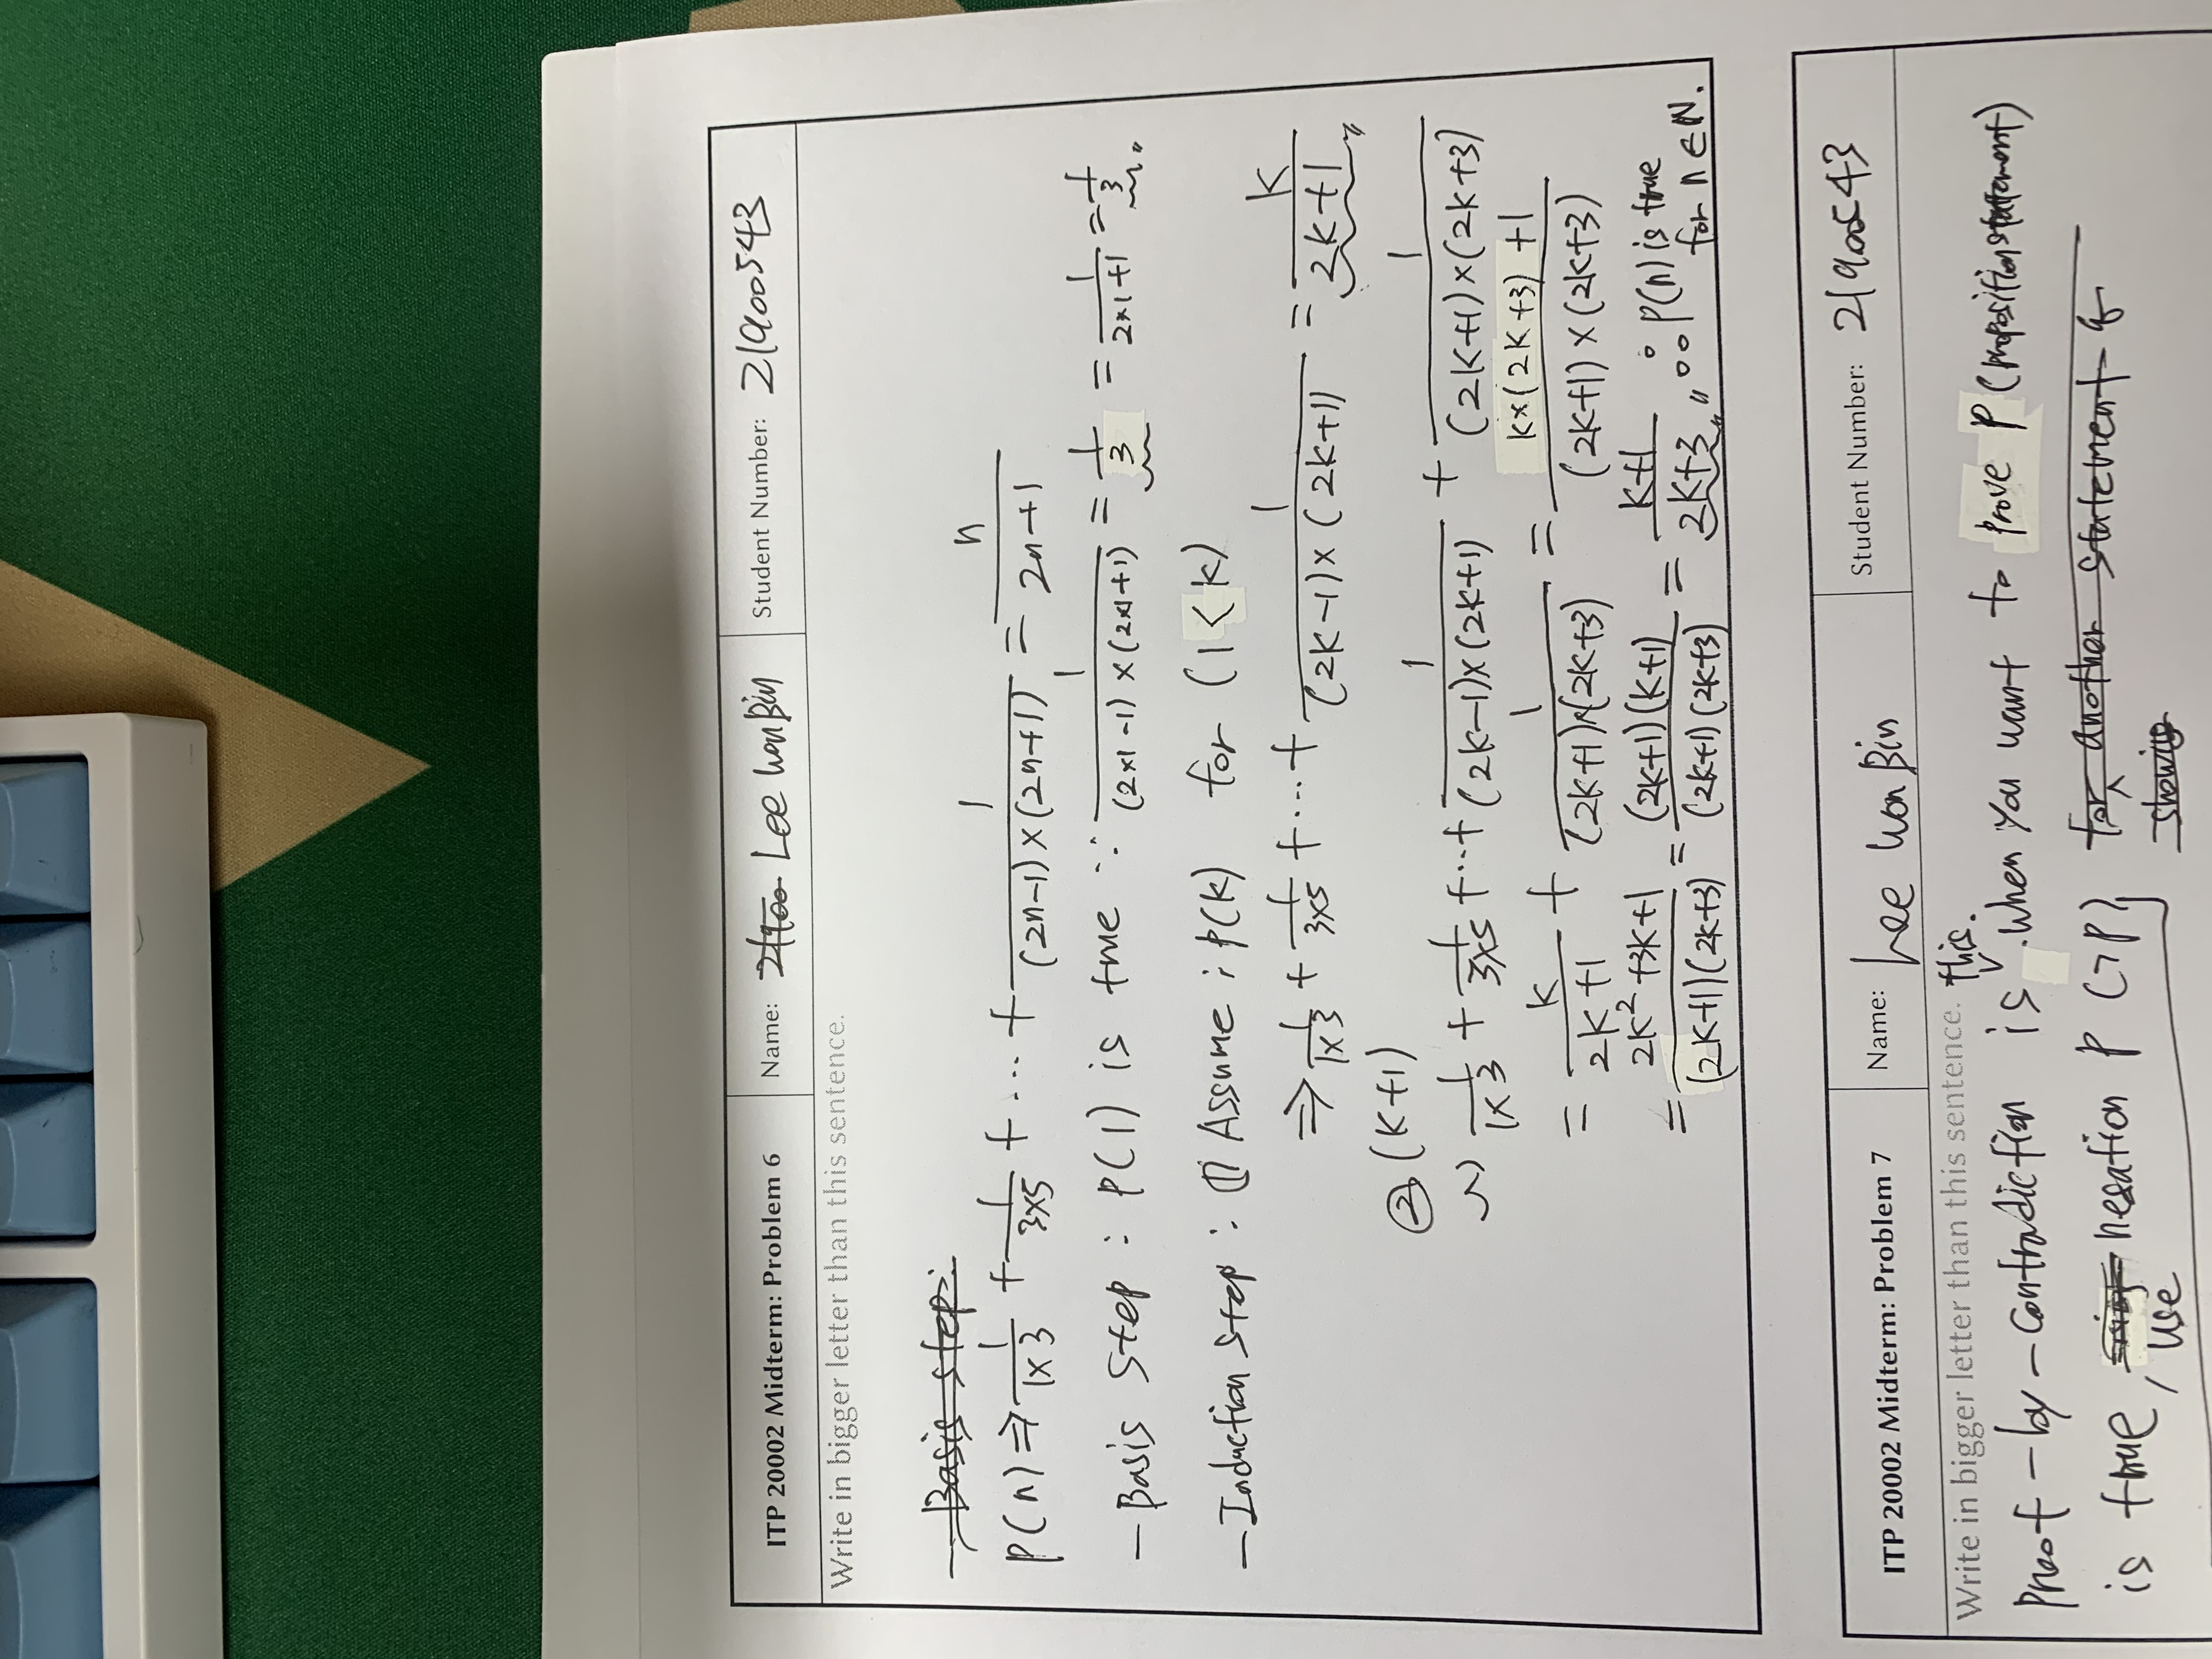 ITP 20002 Midterm: Problem 6 Name: 21900 Lee WonBin Student Number: 21900543
Write in bigger letter than this sentence.
- Basis step:
P(n) ⇒ 1/(1×3) + 1/(3×5) + ... + 1/((2n-1)×(2n+1)) = n/(2n+1)
- Basis Step : P(1) is true ∵ 1/((2×1-1)×(2×1+1)) = 1/3 = 1/(2×1+1) = 1/3 〃
- Induction Step : ① Assume ; P(k) for (1<k)
⇒ 1/(1×3) + 1/(3×5) + ... + 1/((2k-1)×(2k+1)) = k/(2k+1) 〃
② (k+1)
1/(1×3) + 1/(3×5) + ... + 1/((2k-1)×(2k+1)) + 1/((2k+1)×(2k+3))
= k/(2k+1) + 1/((2k+1)×(2k+3)) = (k×(2k+3)+1)/((2k+1)×(2k+3))
= (2k²+3k+1)/((2k+1)(2k+3)) = ((2k+1)(k+1))/((2k+1)(2k+3)) = (k+1)/(2k+3) 〃 ∴ P(n) is true
for n ∈ N.
ITP 20002 Midterm: Problem 7 Name: Lee WonBin Student Number: 21900543
Write in bigger letter than this sentence.
Proof-by-contradiction is this. When you want to prove P (proposition statement)
is true, use negation P (¬P) for another statement q
showing